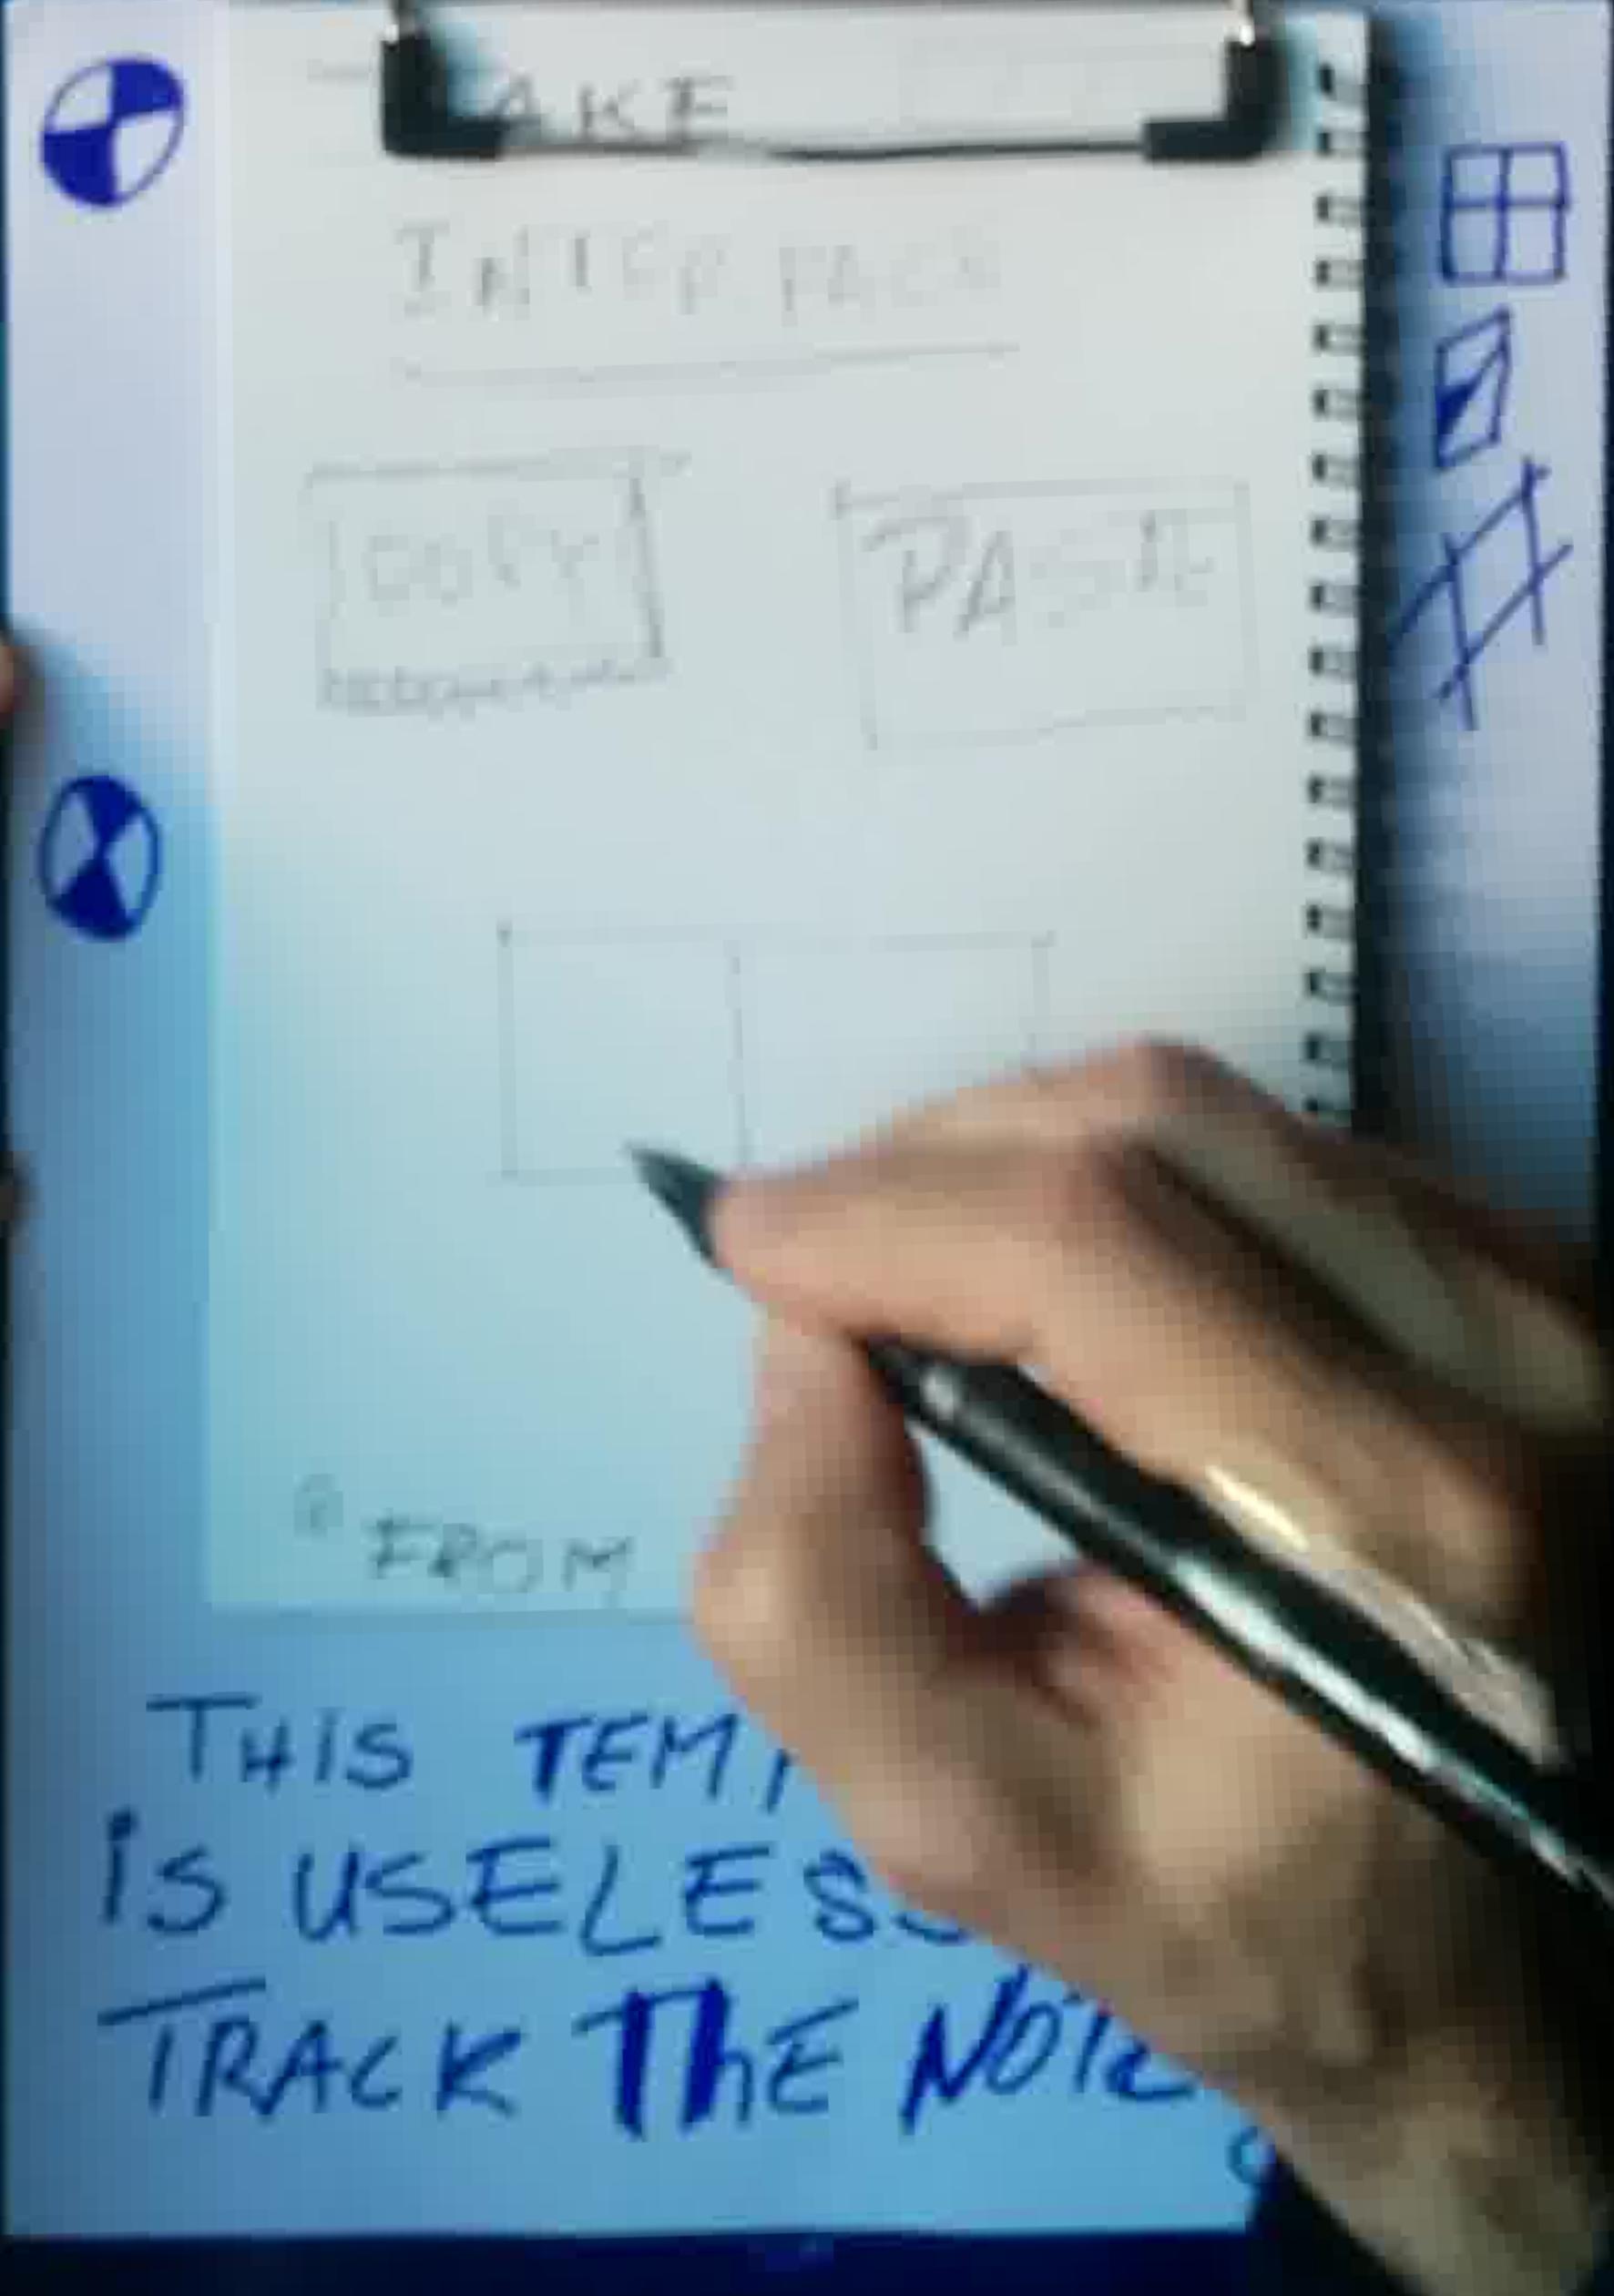 AKE
INTERFACE
COPY PASTE
FROM
THiS TEMP
is USELESS
TRACK ThE NOTE